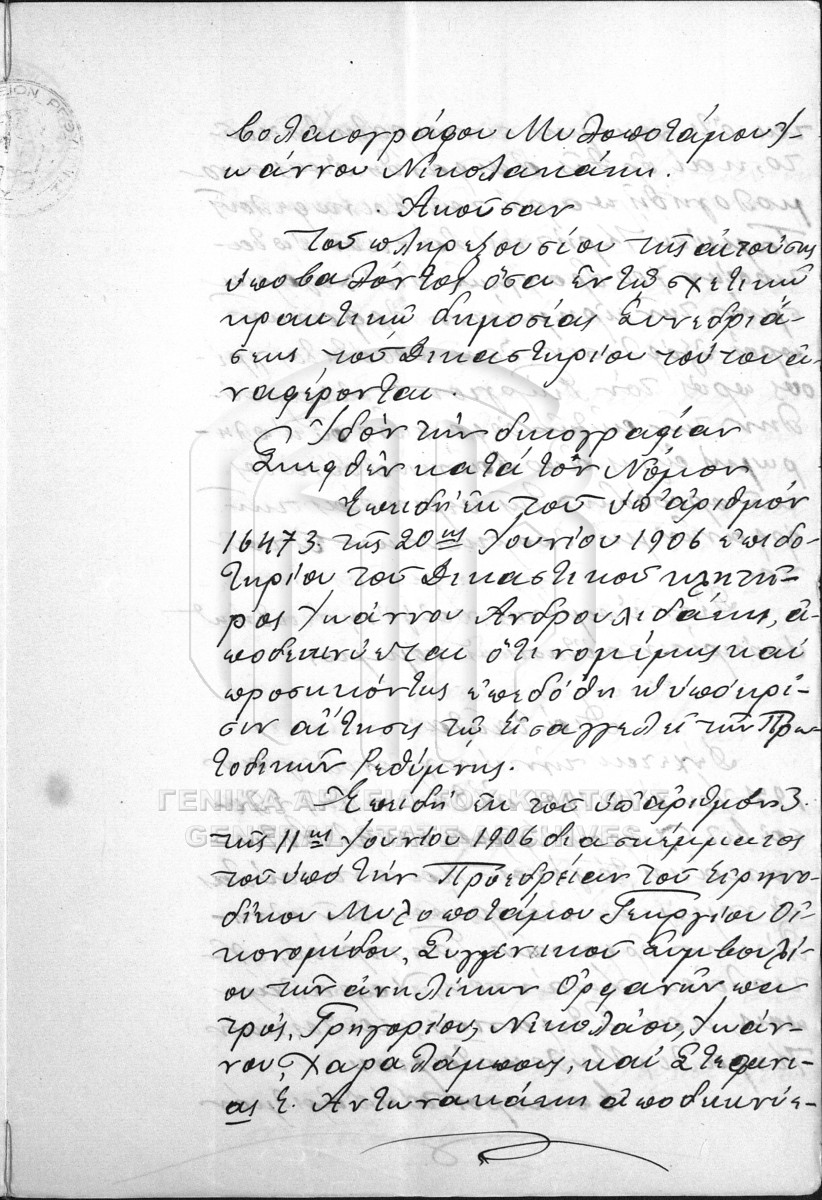 βολαιογράφου Μυλοποτάμου Ἰ-
ωάννου Νικολακάκη.
Ἀκοῦσαν
Τοῦ πληρεξουσίου τῆς αἰτούσης
ὑποβαλόντος ὅσα ἐν τῷ σχετικῷ
πρακτικῷ δημοσίας Συνεδριά-
σεως τοῦ Δικαστηρίου τούτου ἀ-
ναφέρονται.
Ἰδὸν τὴν δικογραφίαν
Σκεφθὲν κατὰ τὸν Νόμον
Ἐπειδὴ ἐκ τοῦ ὑπ' ἀριθμὸν
16473 τῆς 20ῆς Ἰουνίου 1906 ἐπιδο-
τηρίου τοῦ Δικαστικοῦ κλητῆ-
ρος Ἰωάννου Ἀνδρουλιδάκη, ἀ-
ποδεικνύεται ὅτι νομίμως καὶ
προσηκόντως ἐπεδόθη ἡ ὑπὸ κρί-
σιν αἴτησις τῷ Εἰσαγγελεῖ τῶν Πρω-
τοδικῶν Ρεθύμνης.
Ἐπειδὴ ἐκ τοῦ ὑπ' ἀριθμὸν 3
τῆς 11ῆς Ἰουνίου 1906 διασκέμματος
τοῦ ὑπὸ τὴν Προεδρείαν τοῦ Εἰρηνο-
δίκου Μυλοποτάμου Γεωργίου Οἰ-
κονομίδου, Συγγενικοῦ Συμβουλί-
ου τῶν ἀνηλίκων Ὀρφανῶν πα-
τρός, Γρηγορίου, Νικολάου, Ἰωάν-
νου, Χαραλάμπους, καὶ Στεφανί-
ας Ε. Ἀντωνακάκη ἀποδεικνύε-
ΓΕΝΙΚΑ ΑΡΧΕΙΑ ΤΟΥ ΚΡΑΤΟΥΣ
GENERAL STATE ARCHIVES